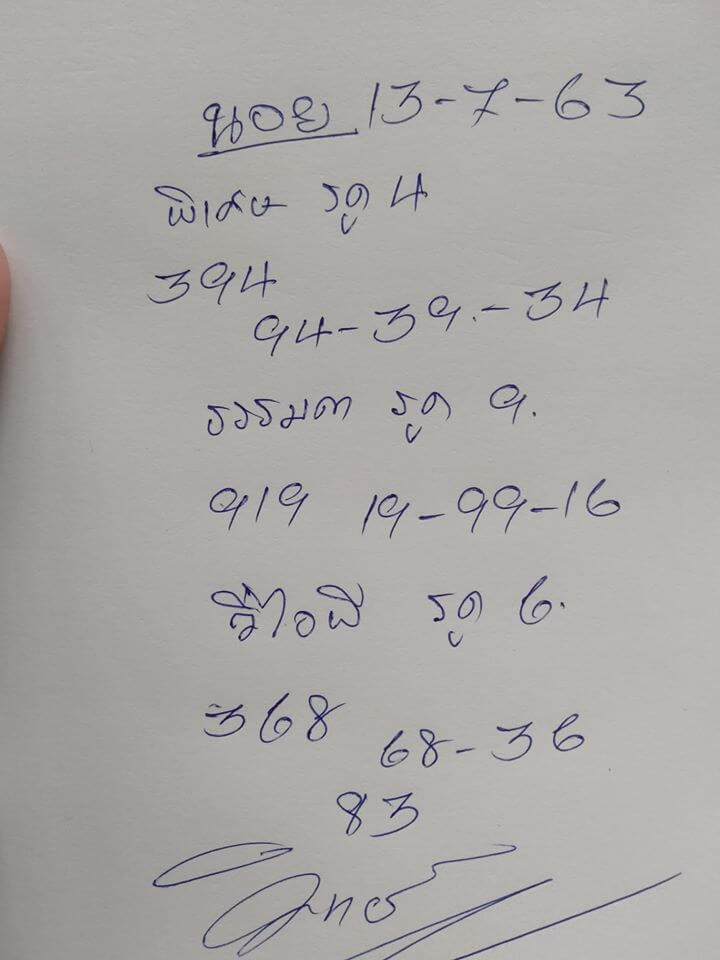 นอย 13-7-63
พิเศษ รูด 4
394
94-39.-34
ธรรมดา รูด 9.
919 19-99-16
วีไอพี รูด 6.
368 68-36
83